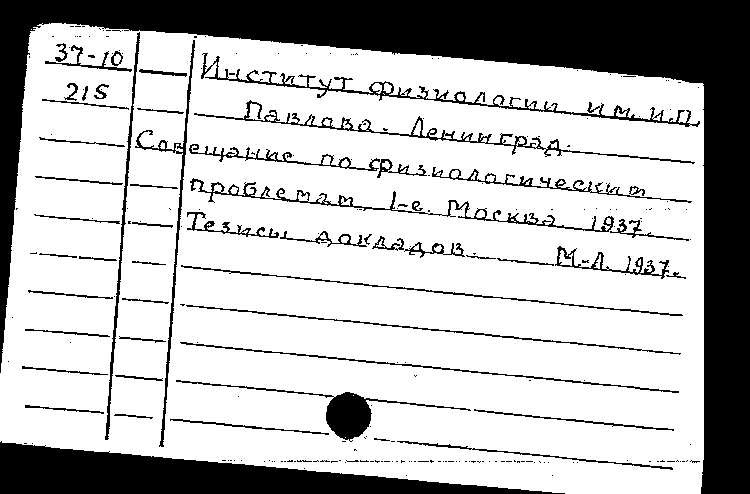 37-10 Институт физиологии им. И.П.
215 Павлова. Ленинград.
Совещание по физиологическим
проблемам 1-е. Москва 1937.
Тезисы докладов. М.-Л. 1937.